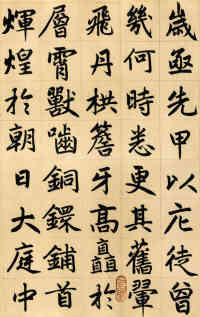 歲亟先甲以庀徒曾
幾何時悉更其舊翬
飛丹栱簷牙高矗於
層霄獸噛銅鐶鋪首
輝煌於朝日大庭中